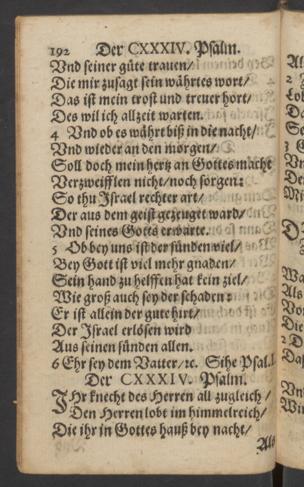 192 Der CXXXIV. Psalm.
Vnd seiner güte trauen/
Die mir zusagt sein währtes wort/
Das ist mein trost und treuer hort/
Des wil ich allzeit warten.
4 Vnd ob es währt biß in die nacht/
Vnd wieder an den morgen/
Soll doch mein hertz an Gottes macht
Verzweifflen nicht/noch sorgen:
So thu Jsrael rechter art/
Der aus dem geist gezeuget ward/
Vnd seines Gotts erwarte.
5 Ob bey uns ist der sünden viel/
Bey Gott ist viel mehr gnaden/
Sein hand zu helffen hat kein ziel/
Wie groß auch sey der schaden:
Er ist allein der gute hirt/
Der Jsrael erlösen wird
Aus seinen sünden allen.
6 Ehr sey dem Vatter/ꝛc. Sihe Psal.
Der CXXXIV. Psalm.
JHr knecht des Herren all zugleich/
Den Herren lobt im himmelreich/
Die ihr in Gottes hauß bey nacht/
Als